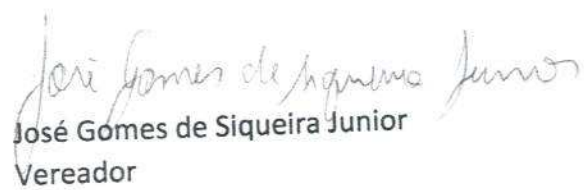 José Gomes de Siqueira Junior
José Gomes de Siqueira Junior
Vereador